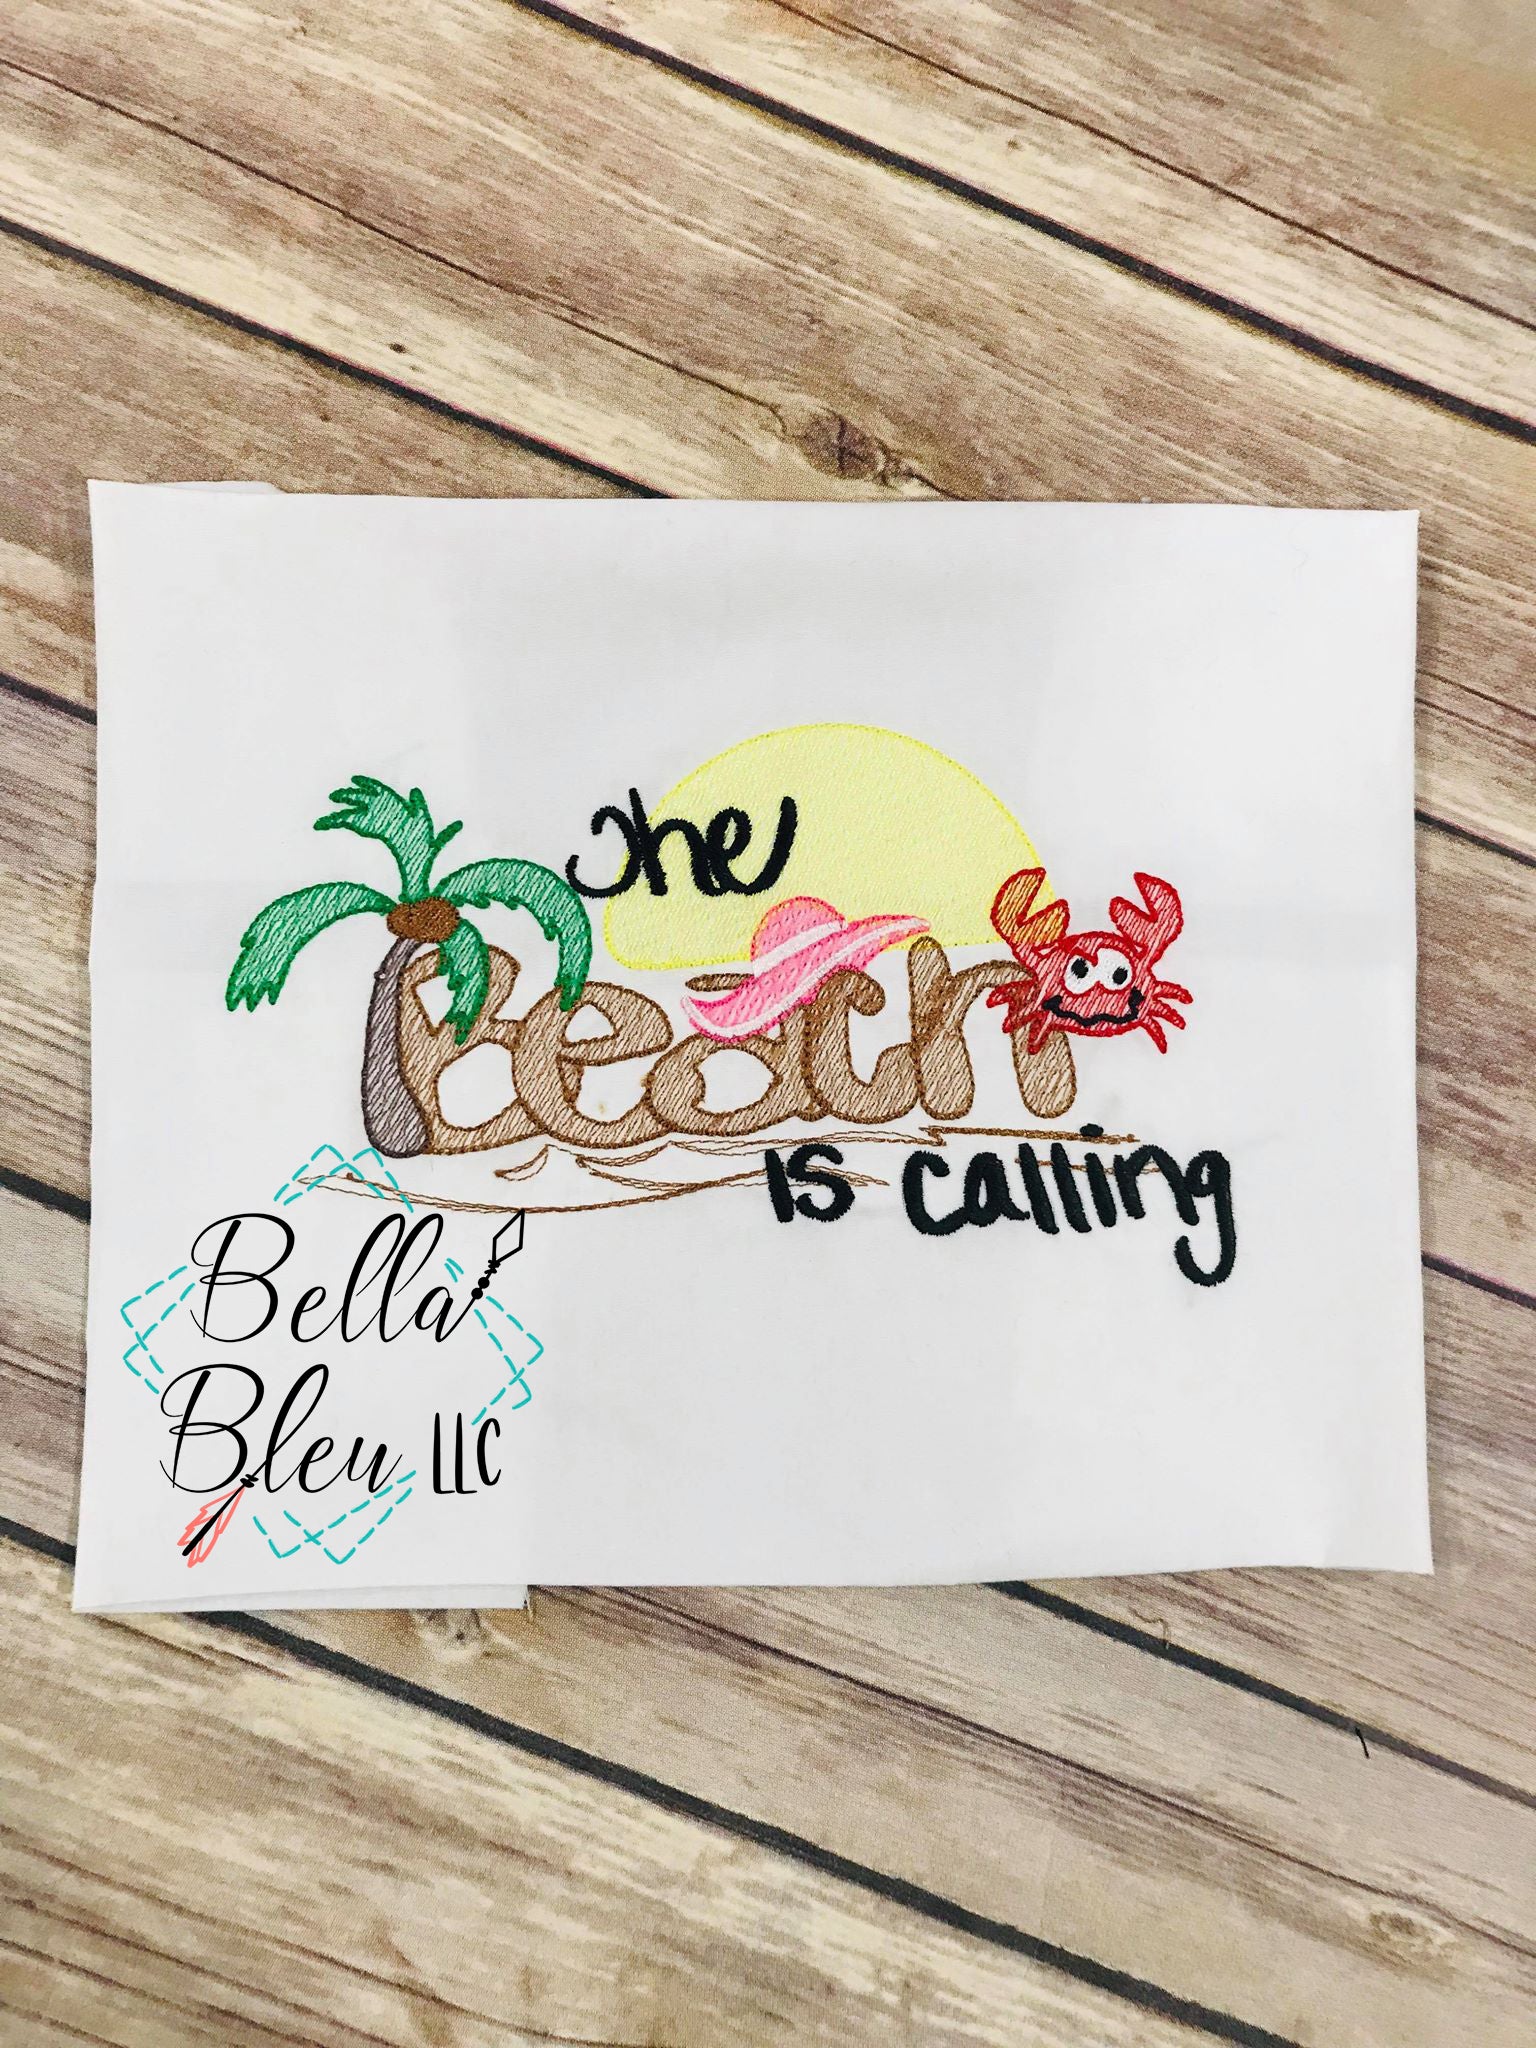 The
Beach
is calling
Bella
Bleu LLC